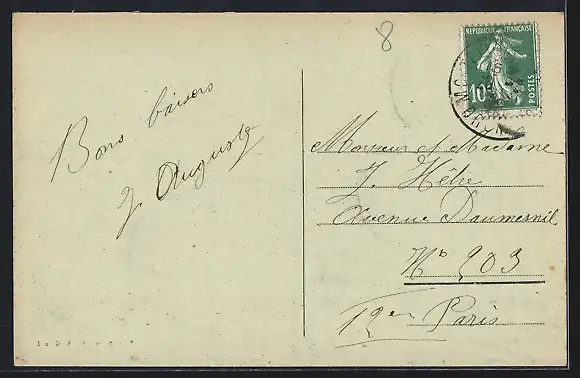 8
RÉPUBLIQUE FRANÇAISE
10c
POSTES
Bons baisers
J. Auguste
Monsieur et Madame
J. Hêtre
Avenue Daumesnil
N° 203
12em Paris